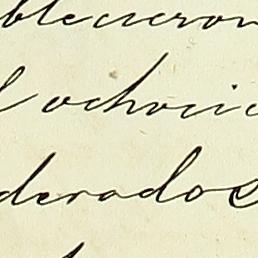 blecieron
l ochocie
derados